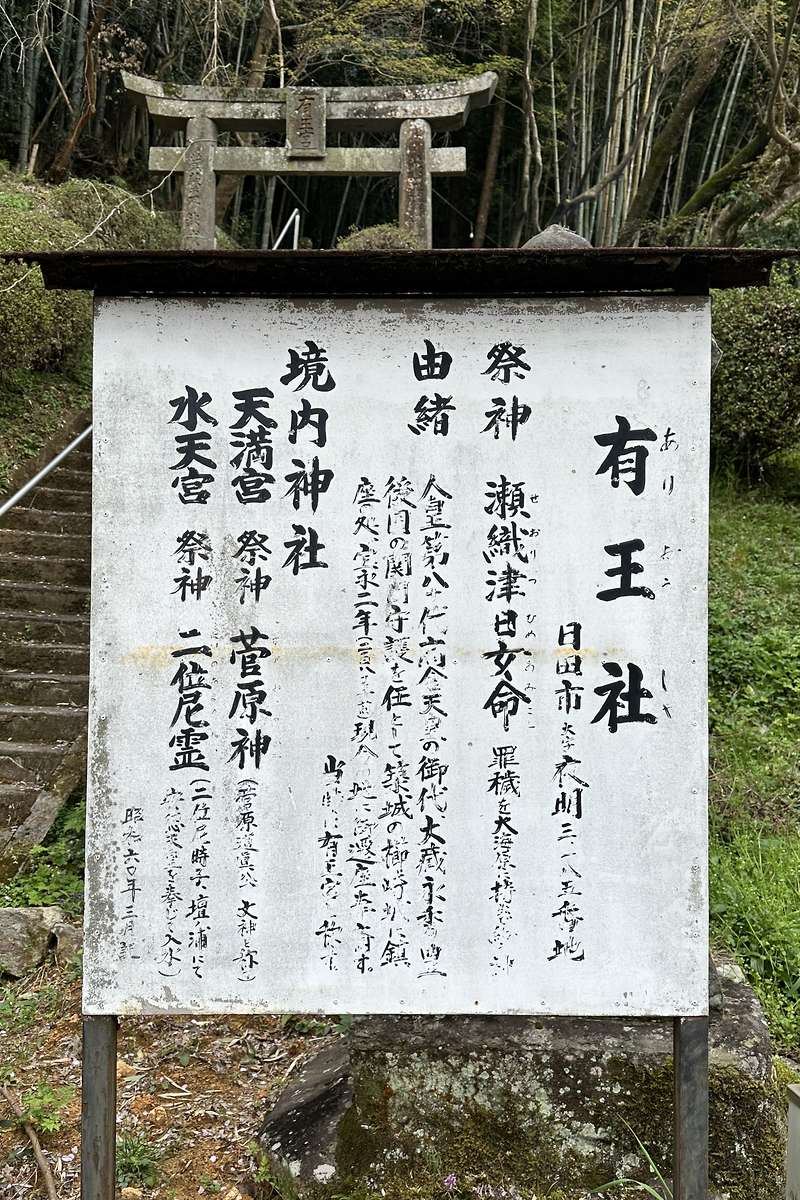 有王宮
有王社
ありおうしゃ
日田市大字衣明三一八五番地
祭神 瀬織津日女命 罪穢を大海原に
せおりつひめのみこと
由緒
人皇第八十代高倉天皇の御代大蔵永季の豊
後国の関門守護を任として築城の櫛崎城に鎮
座の処、宝永二年 現今の地に御遷座奉斎す。
当時は有王宮と称す。
境内神社
天満宮 祭神 菅原神(菅原道真公 文神と称し)
水天宮 祭神 二位尼霊(二位尼時子、壇ノ浦にて
安徳天皇を奉じて入水)
昭和六〇年三月